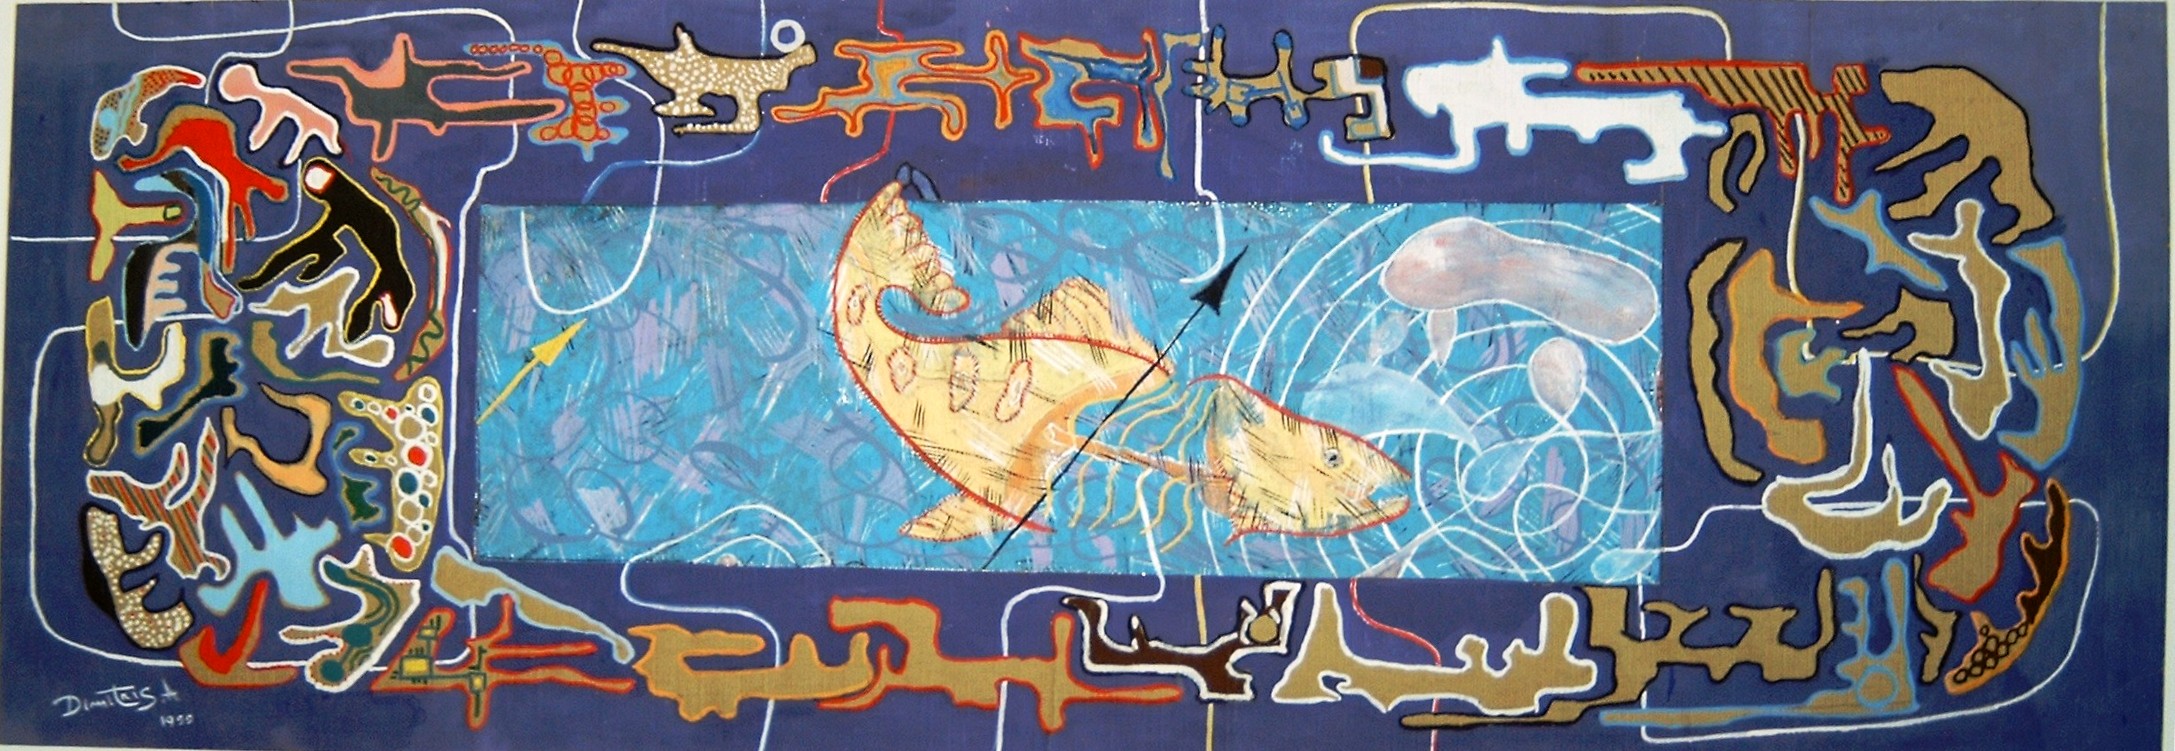 Dimitris.A
1999